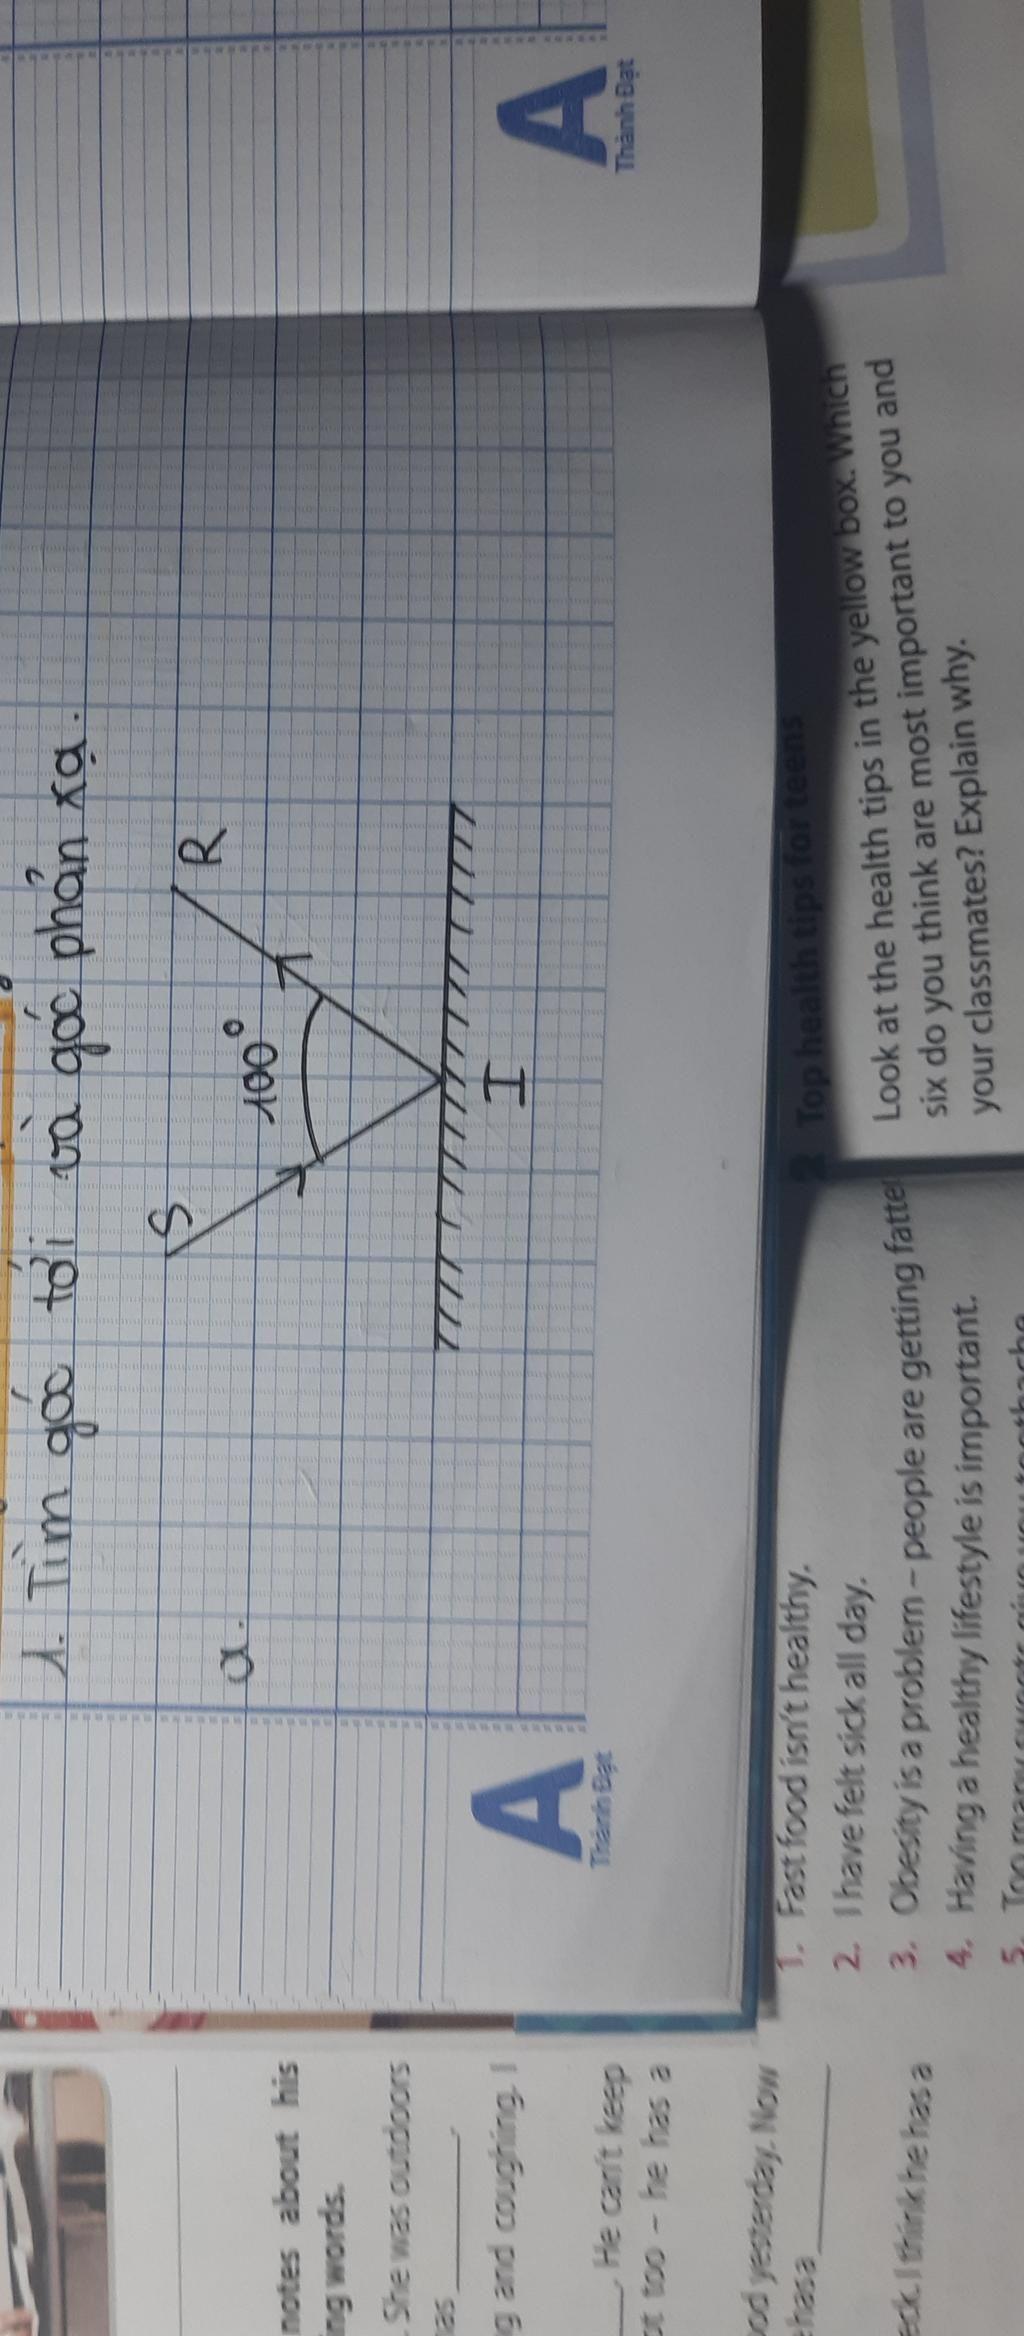 1. Tìm góc tới và góc phản xạ.
a.
S
R
100°
I
A
Thành Đạt
A
Thành Đạt
2 Top health tips for teens
Look at the health tips in the yellow box. Which
six do you think are most important to you and
your classmates? Explain why.
1. Fast food isn't healthy.
2. I have felt sick all day.
3. Obesity is a problem – people are getting fatter
4. Having a healthy lifestyle is important.
5. Too many sweets give you toothache
notes about his
ing words.
. She was outdoors
as ______.
g and coughing. I
____. He can't keep
ot too – he has a
ood yesterday. Now
has a ______
eck. I think he has a